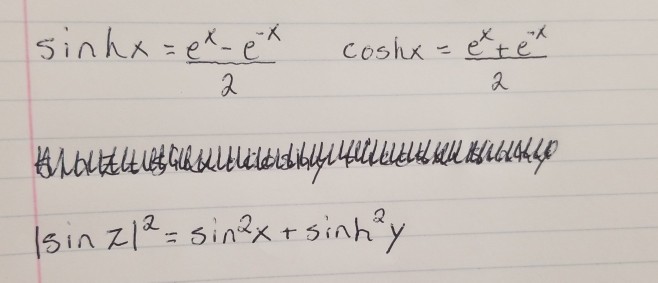 sinhx = (e^x - e^-x)/2    coshx = (e^x + e^-x)/2
|sin z|² = sin²x + sinh²y